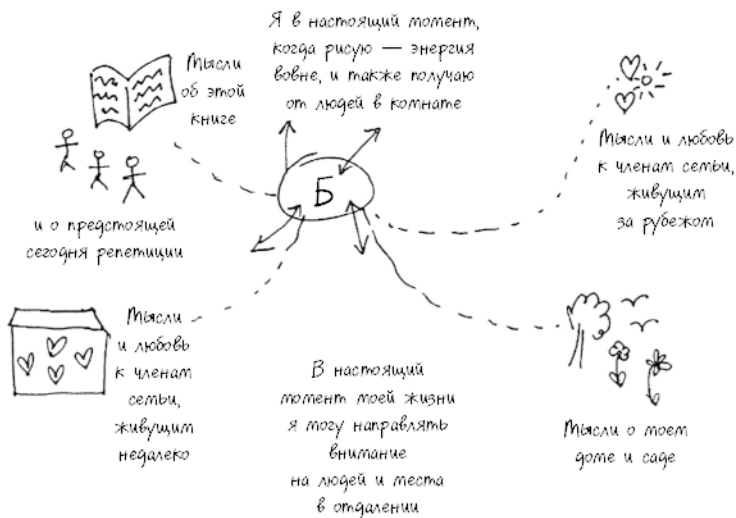 Я в настоящий момент,
когда рисую — энергия
вовне, и также получаю
от людей в комнате
Мысли
об этой
книге
и о предстоящей
сегодня репетиции
Б
Мысли и любовь
к членам семьи,
живущим
за рубежом
Мысли
и любовь
к членам
семьи,
живущим
недалеко
В настоящий
момент моей жизни
я могу направлять
внимание
на людей и места
в отдалении
Мысли о моем
доме и саде